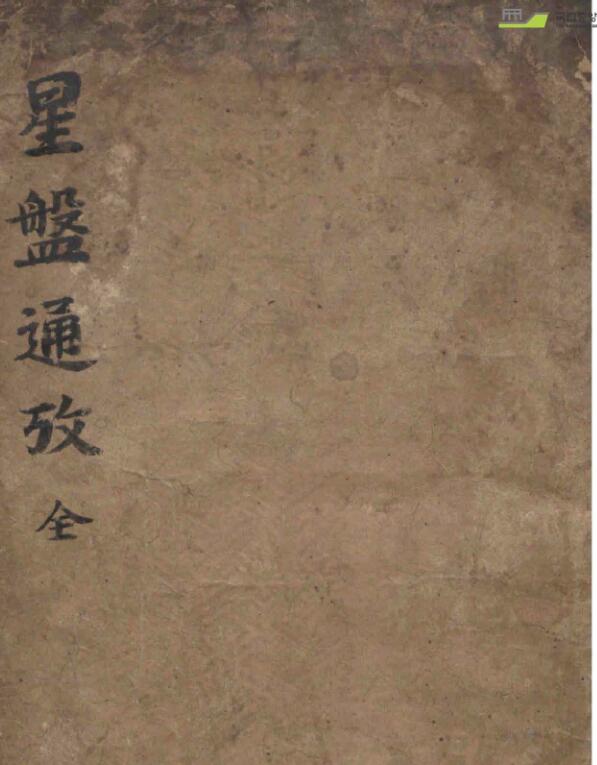 星盤通攷 全